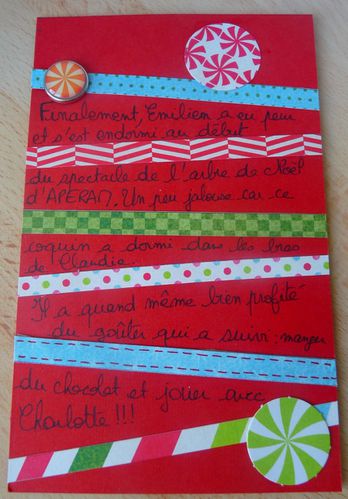 Finalement, Emilien a eu peur
et s'est endormi au début
du spectacle de l'arbre de Noël
d'APERAM. Un peu jalouse car ce
coquin a dormi dans les bras
de Claudie.
Il a quand même bien profité
du goûter qui a suivi : manger
du chocolat et jouer avec
Charlotte !!!